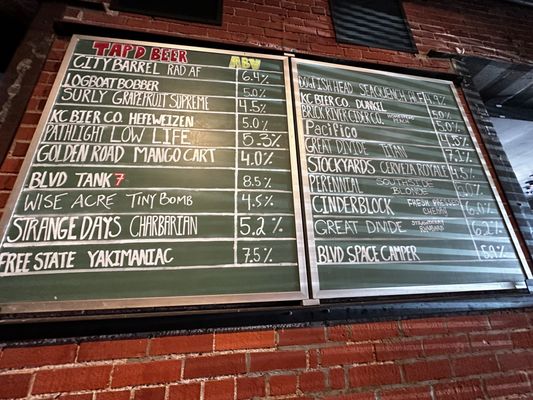 TAP'D BEER ABV
CITY BARREL RAD AF 6.4%
LOGBOAT BOBBER 5.0
SURLY GRAPEFRUIT SUPREME 4.5%
KC BIER CO. HEFEWEIZEN 5.0
PATHLIGHT LOW LIFE 5.3%
GOLDEN ROAD MANGO CART 4.0%
BLVD TANK 7 8.5%
WISE ACRE TINY BOMB 4.5%
STRANGE DAYS CHARBARIAN 5.2%
FREE STATE YAKIMANIAC 7.5%
DOGFISH HEAD SEAQUENCH ALE 4.9%
KC BIER CO. DUNKEL 5.0
BRICK RIVER CIDER CO. HOMESTEAD PEACH 5.0
PACIFICO 4.5%
GREAT DIVIDE TITAN 7.1%
STOCKYARDS CERVEZA ROYALE 4.5
PERENNIAL SOUTHSIDE BLONDE
CINDERBLOCK CHERRY 6.0
GREAT DIVIDE STRAWBERRY RHUBARB 6.2%
BLVD SPACE CAMPER 5.9%